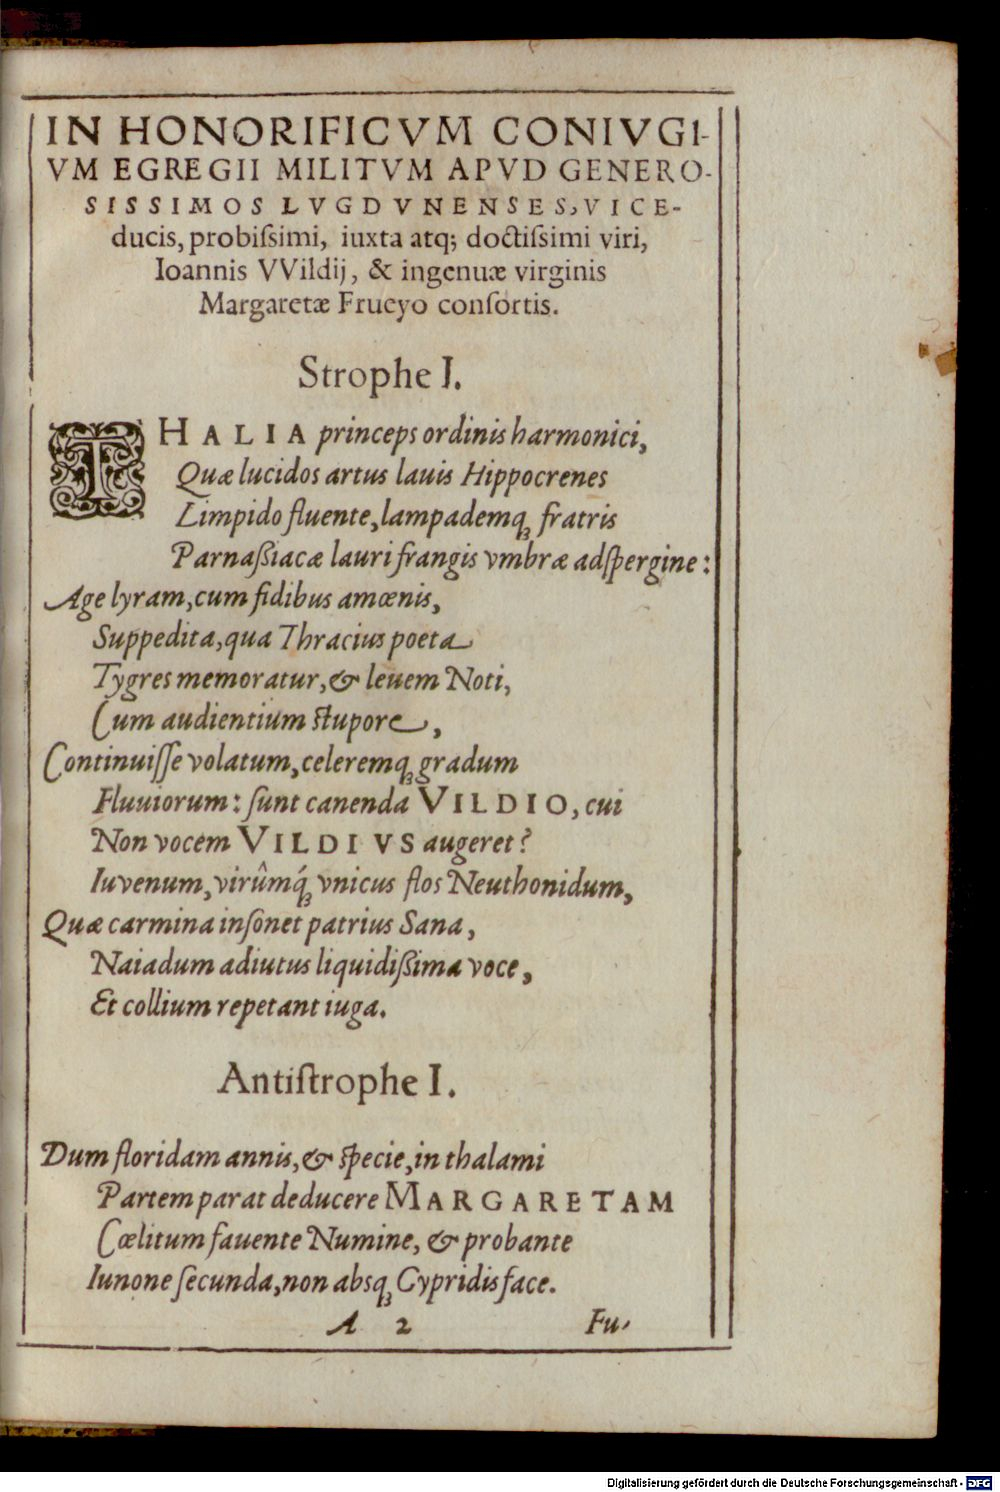 IN HONORIFICVM CONIVGI-
VM EGREGII MILITVM APVD GENERO-
SISSIMOS LVGDVNENSES, VICE-
ducis, probiſsimi, iuxta atq; doctiſsimi viri,
Ioannis VVildij, & ingenuæ virginis
Margaretæ Frueyo conſortis.
Strophe I.
THALIA princeps ordinis harmonici,
Quæ lucidos artus lauis Hippocrenes
Limpido fluente, lampademq; fratris
Parnaßiacæ lauri frangis vmbræ adſpergine:
Age lyram, cum fidibus amœnis,
Suppedita, qua Thracius poeta
Tygres memoratur, & leuem Noti,
Cum audientium ſtupore,
Continuiſſe volatum, celeremq; gradum
Fluuiorum: ſunt canenda VILDIO, cui
Non vocem VILDIVS augeret?
Iuvenum, virûmq́; vnicus flos Neuthonidum,
Quæ carmina inſonet patrius Sana,
Naiadum adiutus liquidißima voce,
Et collium repetant iuga.
Antiſtrophe I.
Dum floridam annis, & ſpecie, in thalami
Partem parat deducere MARGARETAM
Cœlitum fauente Numine, & probante
Iunone ſecunda, non absq; Cypridis face.
A 2 Fu-
Digitalisierung gefördert durch die Deutsche Forschungsgemeinschaft - DFG